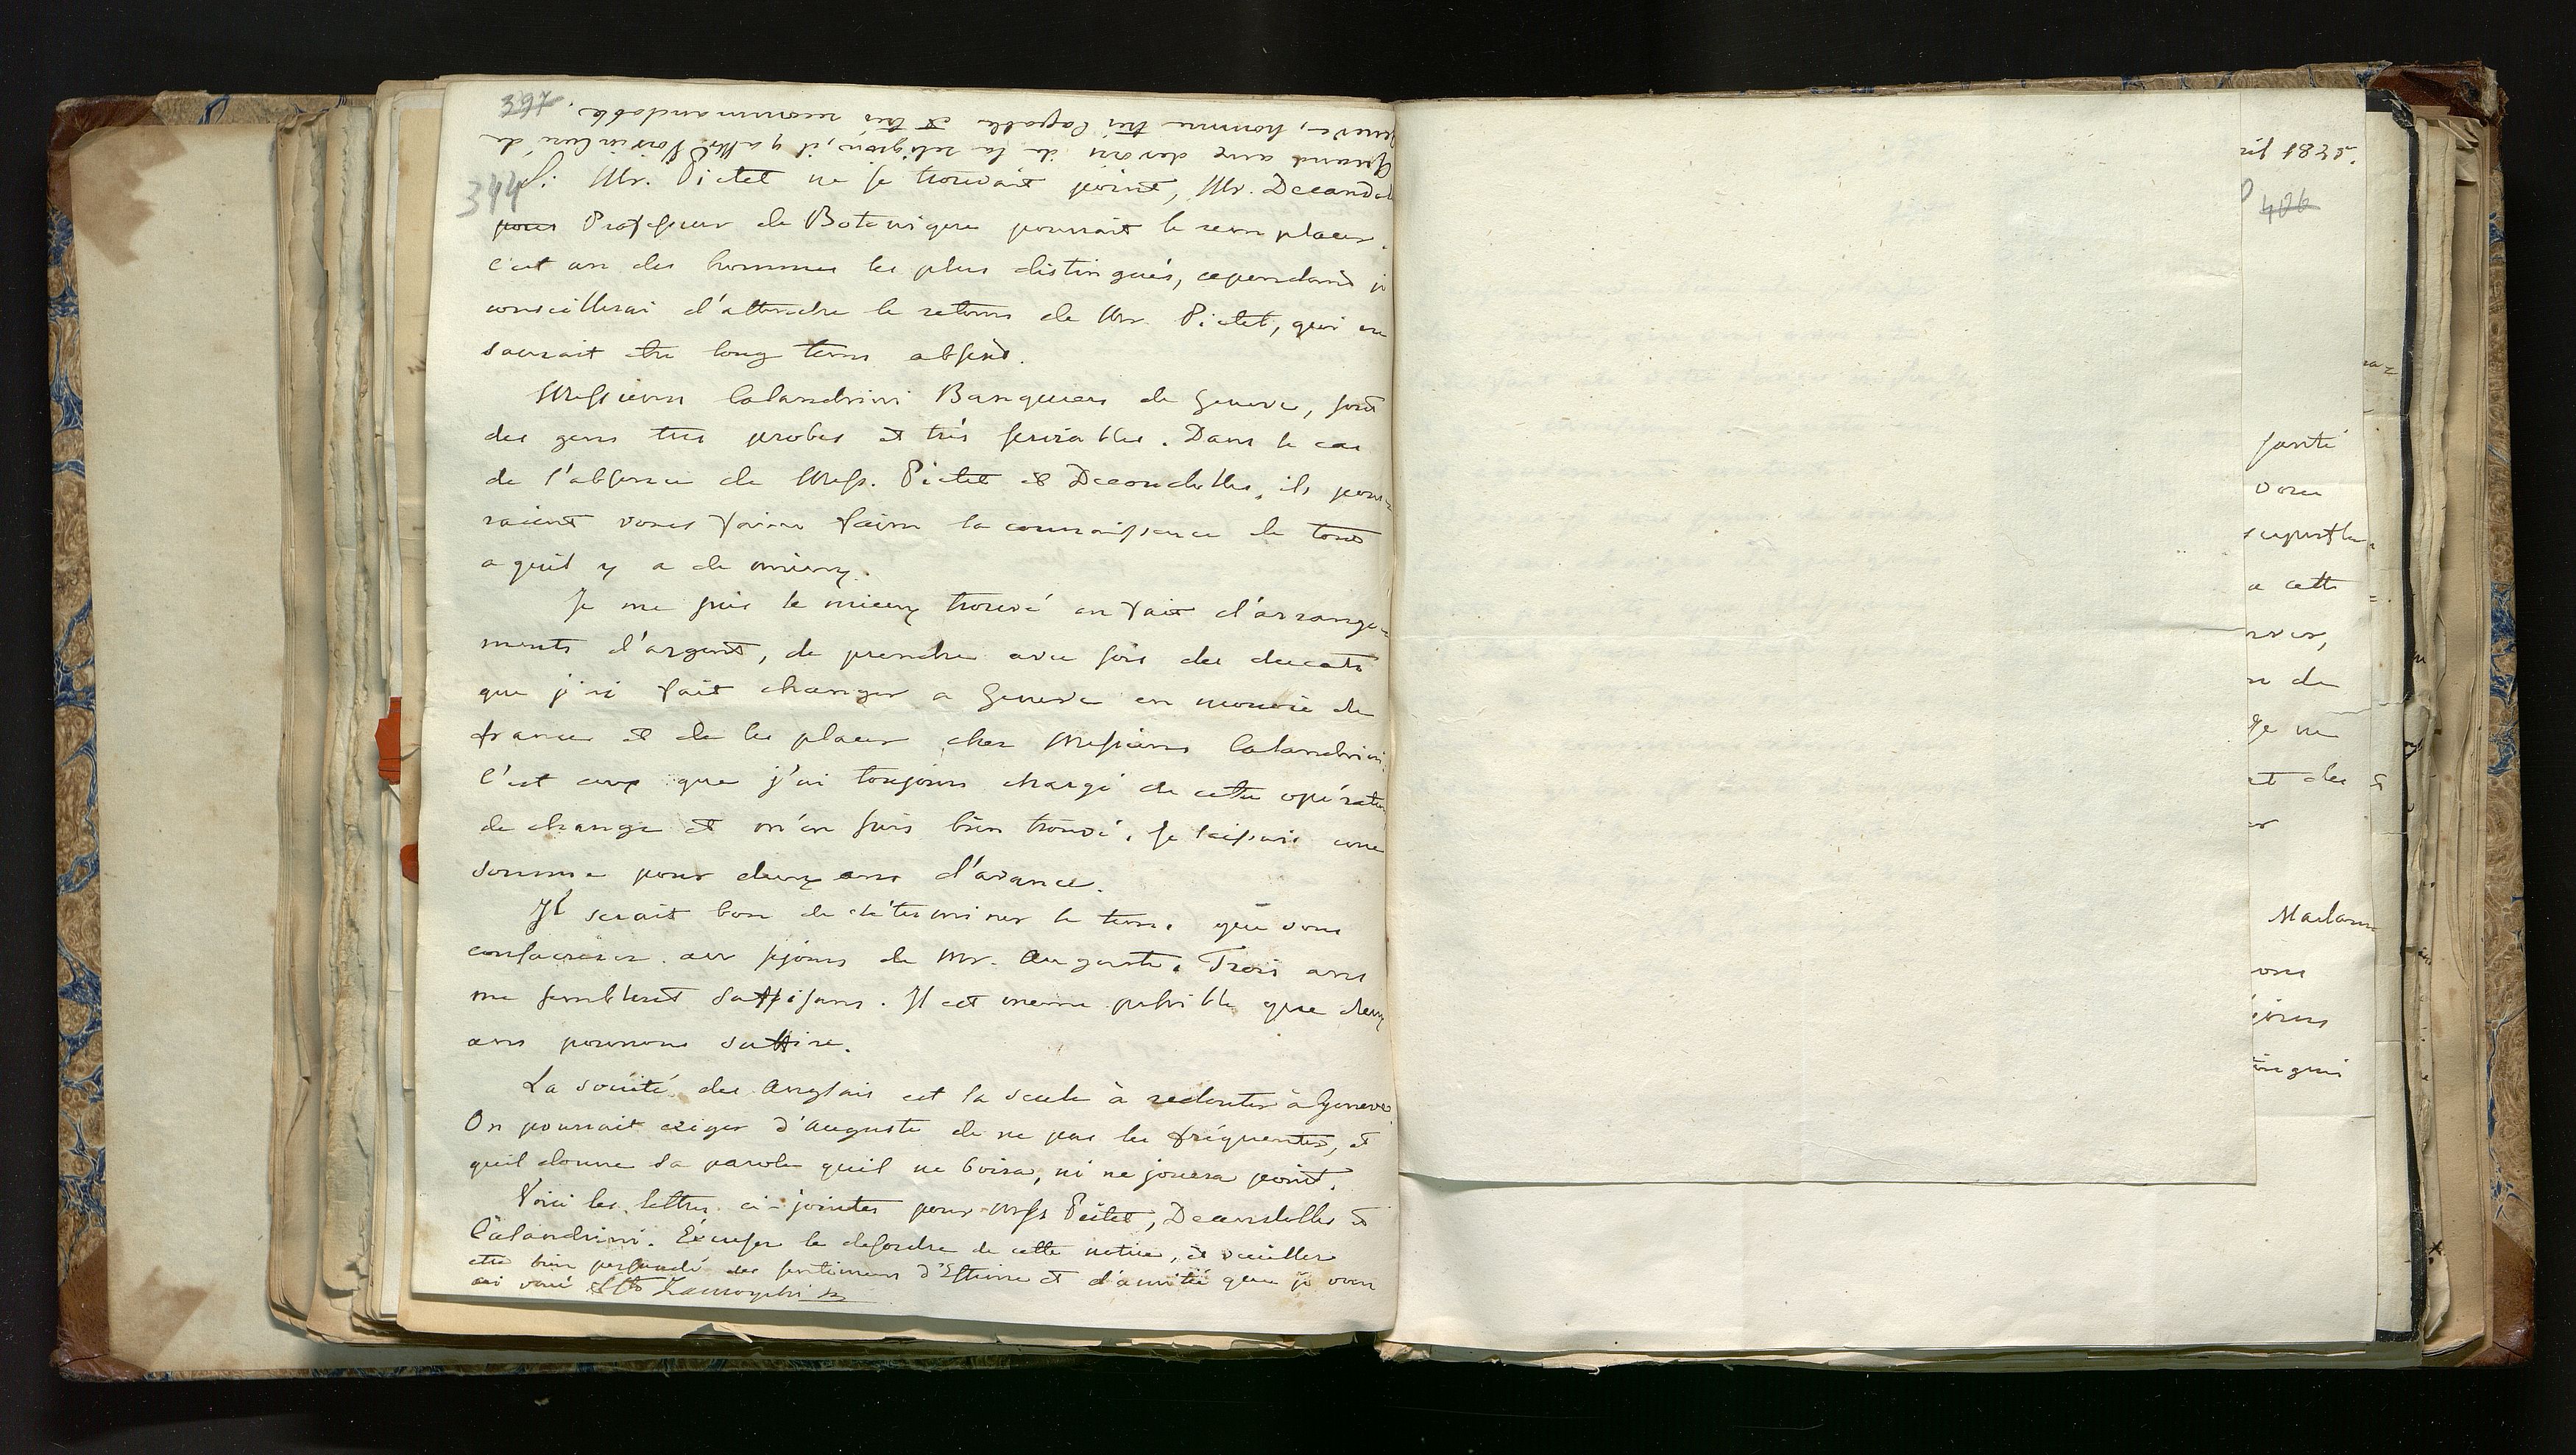 397
Quand aux devoirs de la religion, il y a Mr. Voisin Curé de
Geneve, homme très capable et très recommandable.
344
Si Mr. Pictet ne se trouvait point, Mr. Decandol
pour Professeur de Botanique pourrait le remplacer.
C'est un des hommes les plus distingués, cependant je
conseillerai d'attendre le retour de Mr. Pictet, qui ne
saurait être long tems absent.
Messieurs Calandrini Banquiers de Geneve, sont
des gens très probes et très serviables. Dans le cas
de l'absence de Mess. Pictet et Decandolles, ils pour=
raient vous faire faire la connaissance de tout
a quil y a de mieux.
Je me suis le mieux trouvé en fait d'arrange=
ments d'argent, de prendre avec soi des ducats
que j'ai fait changer a Geneve en monoie de
france et de les placer chez Messieurs Calandrini.
C'est eux que j'ai toujours chargé de cette opération
de change et m'en suis bien trouvé. Je laissais une
somme pour deux ans d'avance.
Il serait bon de déterminer le tems que vous
consacrerez au séjour de Mr. Auguste. Trois ans
me semblent suffisans. Il est meme possible que deux
ans pourrons suffire.
La société des Anglais est la seule à redouter à Geneve
On pourrait exiger d'Auguste de ne pas les fréquenter, et
quil donne sa parole quil ne boira, ni ne jouera point.
Voici les lettres ci-jointes pour Mess Pictet, Decandolles et
Calandrini. Excusez le desordre de cette notice, et veuillez
etre bien persuadé des sentimens d'Estime et d'amitié que je vous
ai voué Zamoyski
1825.
406
santé
vous
a cette
de
Je ne
et des
Madame